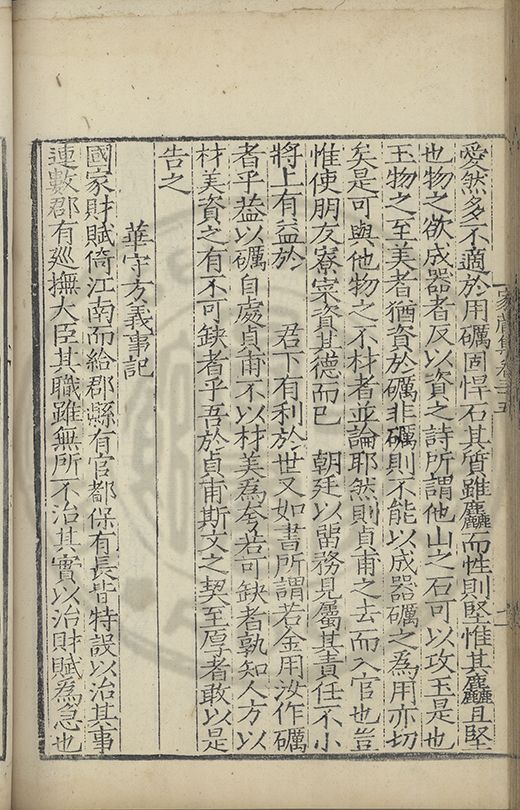 愛然多不適於用礪固悍石其質雖麤而性則堅惟其麤且堅
也物之欲成器者反以資之詩所謂他山之石可以攻玉是也
玉物之至美者猶資於礪非礪則不能以成器礪之為用亦切
矣是可與他物之不材者並論耶然則貞甫之去而入官也豈
惟使朋友寮寀資其德而已　朝廷以留務見屬其責任不小
將上有益於　君下有利於世又如書所謂若金用汝作礪
者乎益以礪自處貞甫不以材美為夸若可缺者孰知人方以
材美資之有不可缺者乎吾於貞甫斯文之契至厚者敢以是
告之
華守方義事記
國家財賦倚江南而給郡縣有官都保有長皆特設以治其事
連數郡有廵撫大臣其職雖無所不治其實以治財賦為急也
家藏集卷三十五